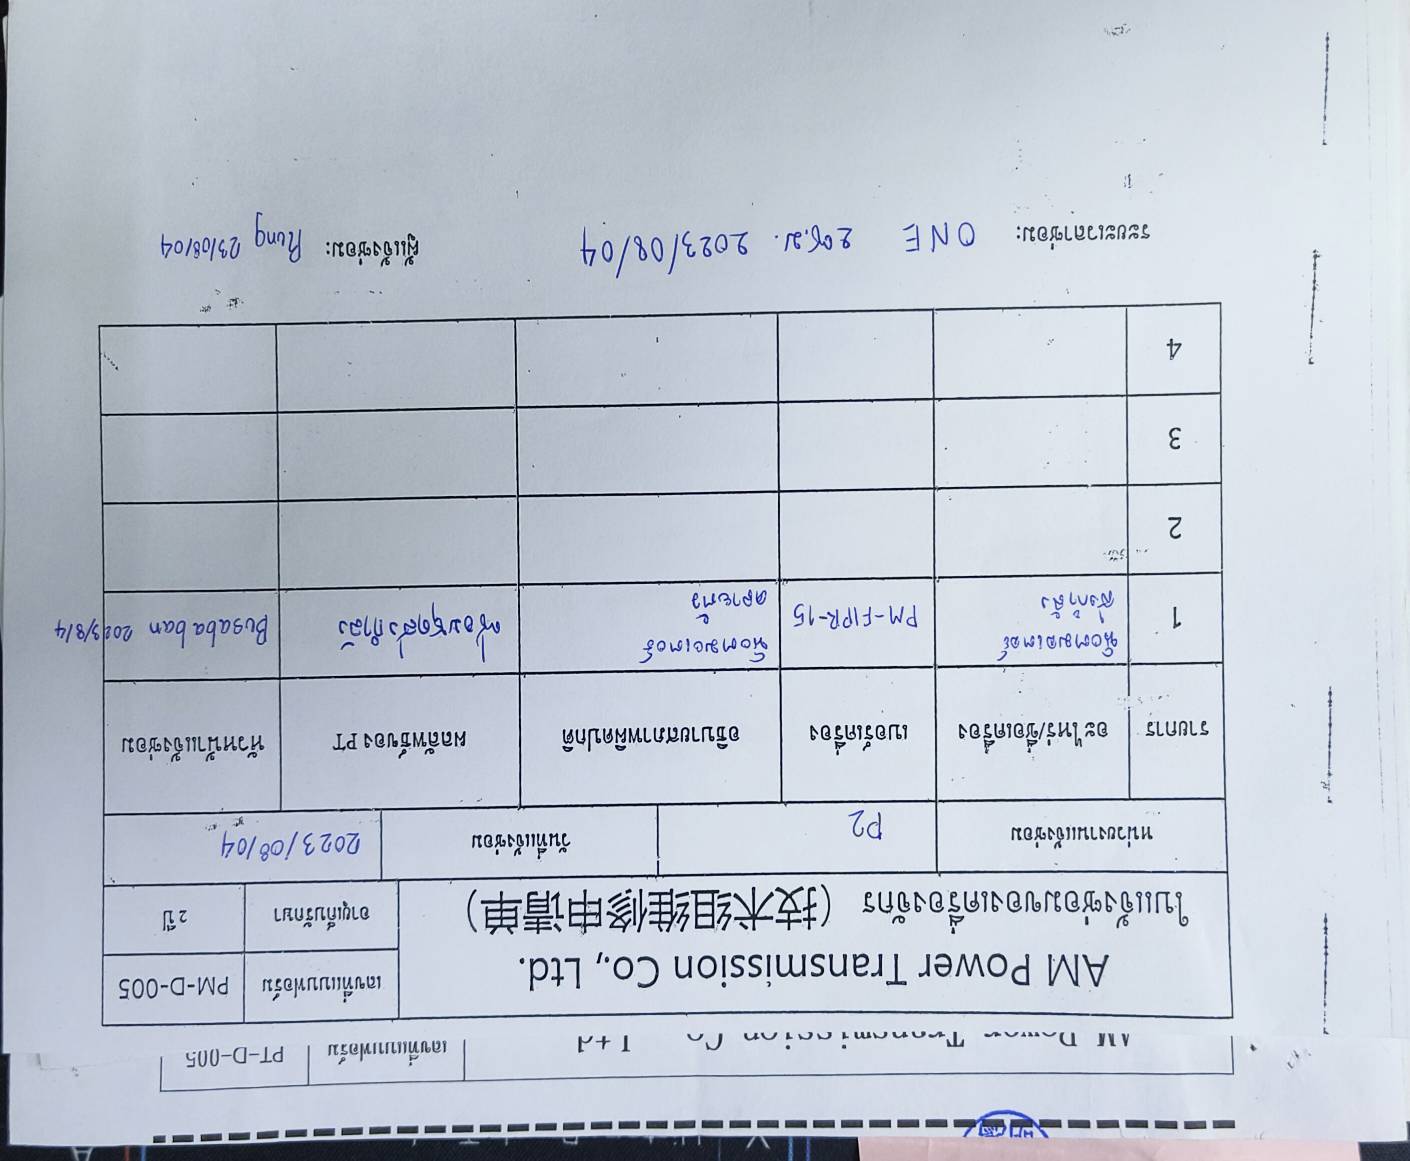 AM Power Transmission Co., Ltd.
เลขที่แบบฟอร์ม PT-D-005
AM Power Transmission Co., Ltd.
เลขที่แบบฟอร์ม PM-D-005
ใบแจ้งซ่อมของเครื่องจักร (技术组维修申请单)
อายุเก็บรักษา 2 ปี
หน่วยงานแจ้งซ่อม P2 วันที่แจ้งซ่อม 2023/08/04
รายการ อะไหร่/ชื่อเครื่อง เบอร์เครื่อง อธิบายสภาพผิดปกติ ผลลัพธ์ของ PT หัวหน้าแจ้งซ่อม
1 น็อตมอเตอร์ ส่งกำลัง PM-FIPR-15 น็อตมอเตอร์ คลายตัว ซ่อมชุดส่งกำลัง Busababan 2023/8/4
2
3
4
ระยะเวลาซ่อม: ONE 2ช.ม. 2023/08/04 ผู้แจ้งซ่อม: Rung 23/08/04